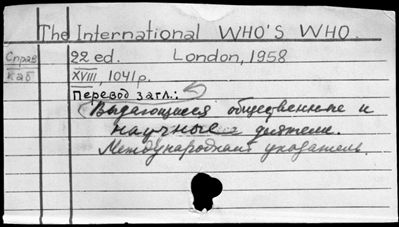 The International WHO'S WHO.
Справ 22 ed. London, 1958
каб XVIII, 1041 p.
Перевод загл.:
Выдающиеся общественные и
научные деятели.
Международный указатель.